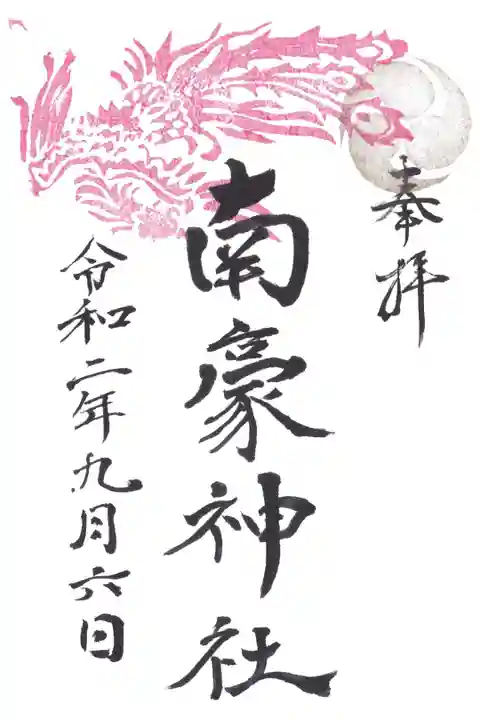 奉拝
南豪神社
令和二年九月六日